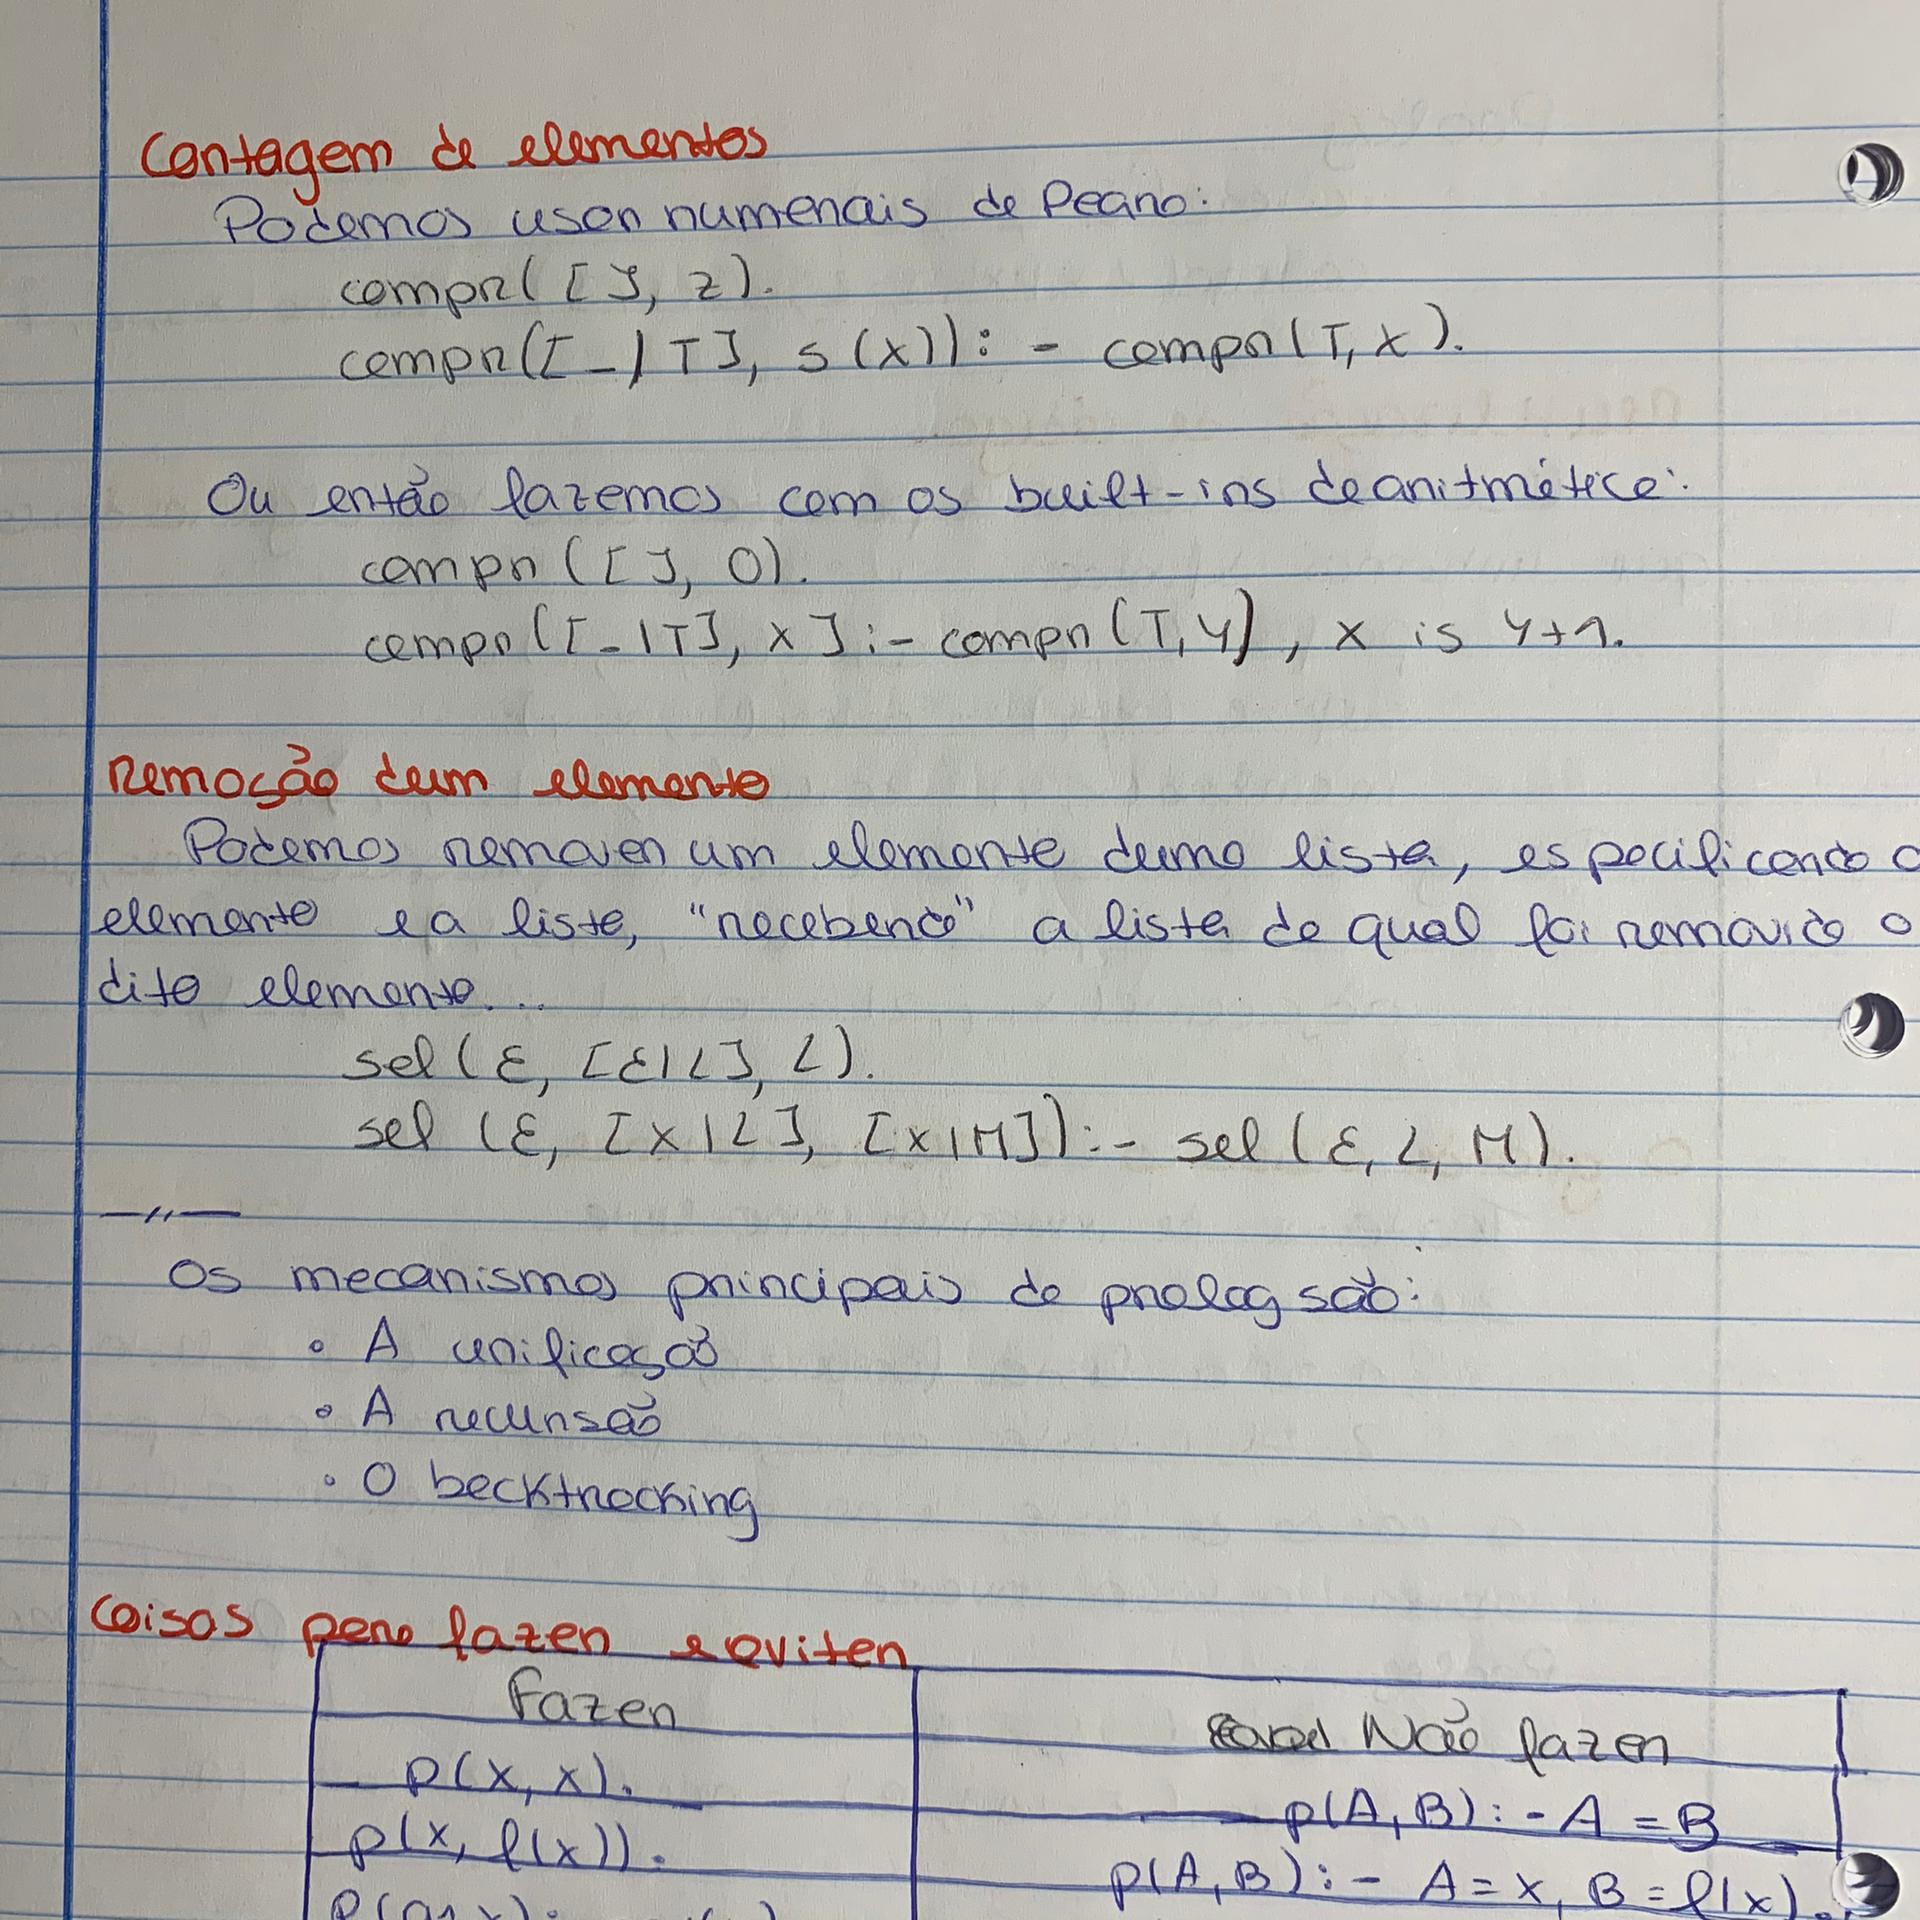 Contagem de elementos
Podemos usar numerais de Peano:
compr([], z).
compr([_|T], s(X)):- compr(T, X).
Ou então fazemos com os built-ins de aritmética:
compr([], 0).
compr([_|T], X]:- compr(T, Y), X is Y+1.
Remoção dum elemento
Podemos remover um elemento duma lista, especificando o
elemento e a lista, "recebendo" a lista de qual foi removido o
dito elemento...
sel(E, [E|L], L).
sel(E, [X|L], [X|M]):- sel(E, L, M).
—//—
Os mecanismos principais de prolog são:
• A unificação
• A recursão
• O backtracking
Coisas para fazer e evitar
Fazer Não fazer
p(X, X). p(A, B):- A = B
p(X, f(X)). p(A, B):- A = X, B = f(X).